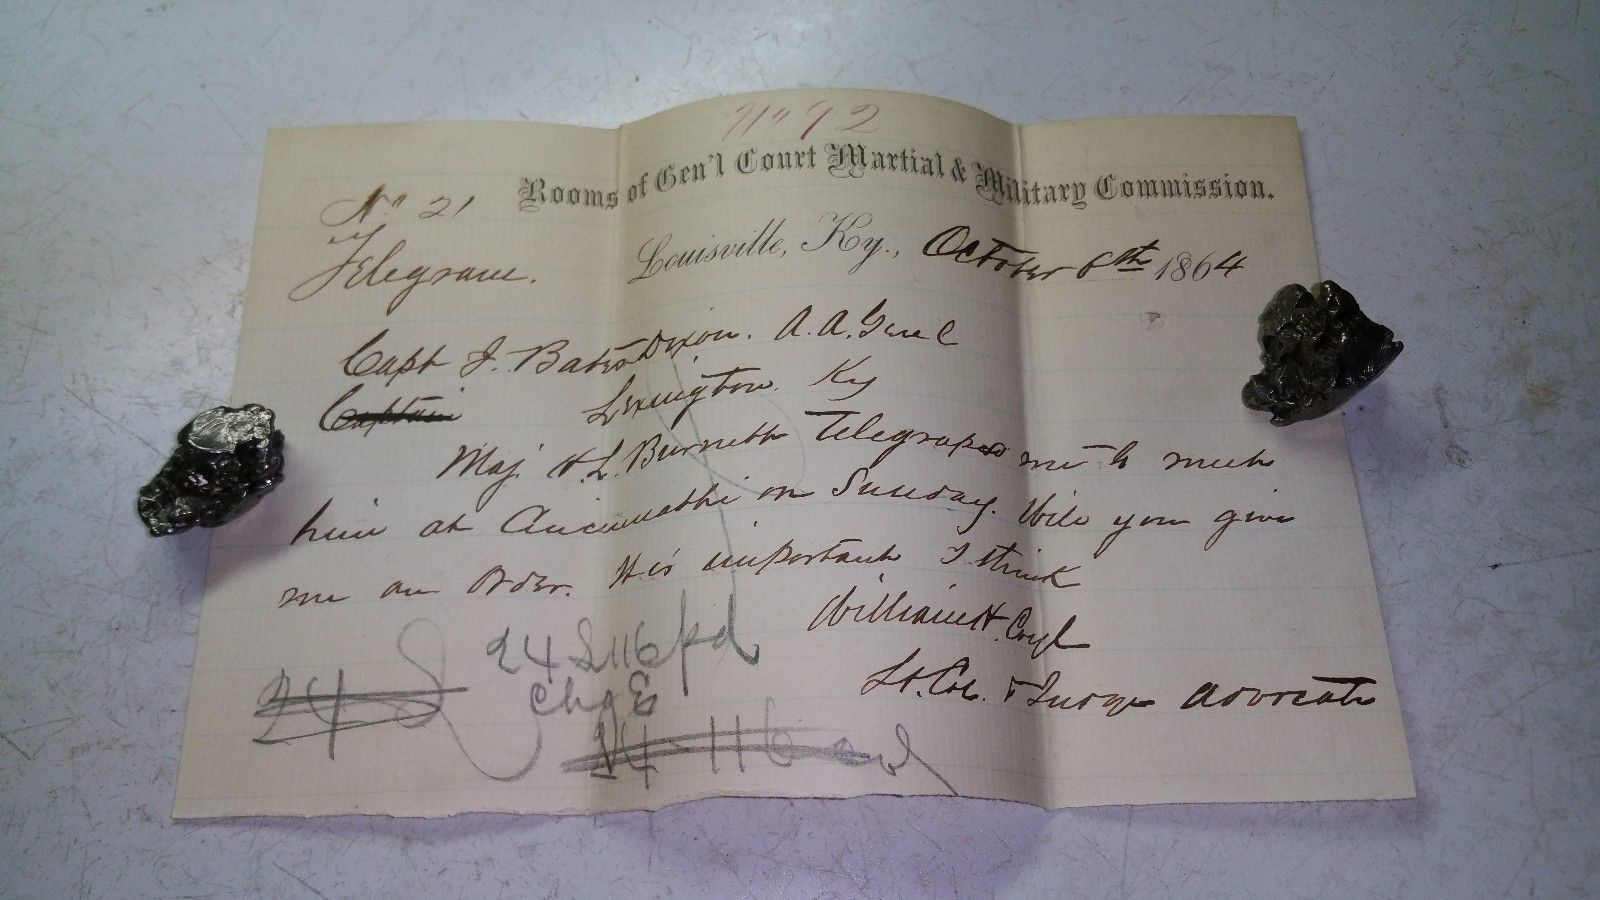 No 92
Rooms of Gen'l Court Martial & Military Commission.
No 21
Telegram.
Louisville, Ky., October 6th 1864
Capt J. Bates Dixon. A. A. Genl
Captain Lexington. Ky
Maj. H. L. Burnett Telegraphs me to meet
him at Cincinnatti on Sunday. Will you give
me an order. It is important I think
William H. Coyl
Lt. Col. & Judge Advocate
24 116 pd
Chg
24
24 116